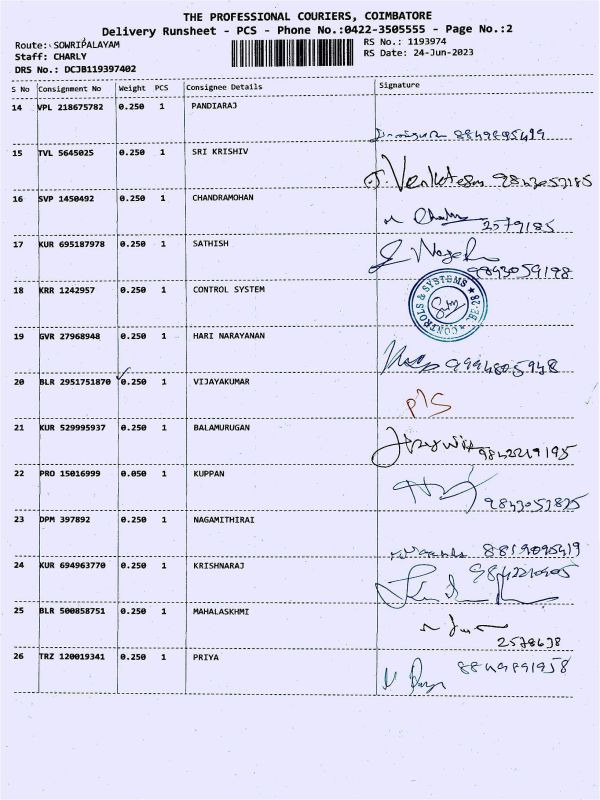 THE PROFESSIONAL COURIERS, COIMBATORE
Delivery Runsheet - PCS - Phone No.:0422-3505555 - Page No.:2
Route: SOWRIPALAYAM
RS No.: 1193974
Staff: CHARLY
RS Date: 24-Jun-2023
DRS No.: DCJB119397402
S No Consignment No Weight PCS Consignee Details Signature
14 VPL 218675782 0.250 1 PANDIARAJ
15 TVL 5645025 0.250 1 SRI KRISHIV
J. Venkatesan
16 SVP 1450492 0.250 1 CHANDRAMOHAN
2579185
17 KUR 695187978 0.250 1 SATHISH
9843059198
18 KRR 1242957 0.250 1 CONTROL SYSTEM
CONTROLS & SYSTEMS
19 GVR 27968948 0.250 1 HARI NARAYANAN
9994805948
20 BLR 2951751870 0.250 1 VIJAYAKUMAR
P/S
21 KUR 529995937 0.250 1 BALAMURUGAN
9842219195
22 PRO 15016999 0.050 1 KUPPAN
9843053825
23 DPM 397892 0.250 1 NAGAMITHIRAI
8819095419
24 KUR 694963770 0.250 1 KRISHNARAJ
25 BLR 500858751 0.250 1 MAHALASKHMI
2578638
26 TRZ 120019341 0.250 1 PRIYA